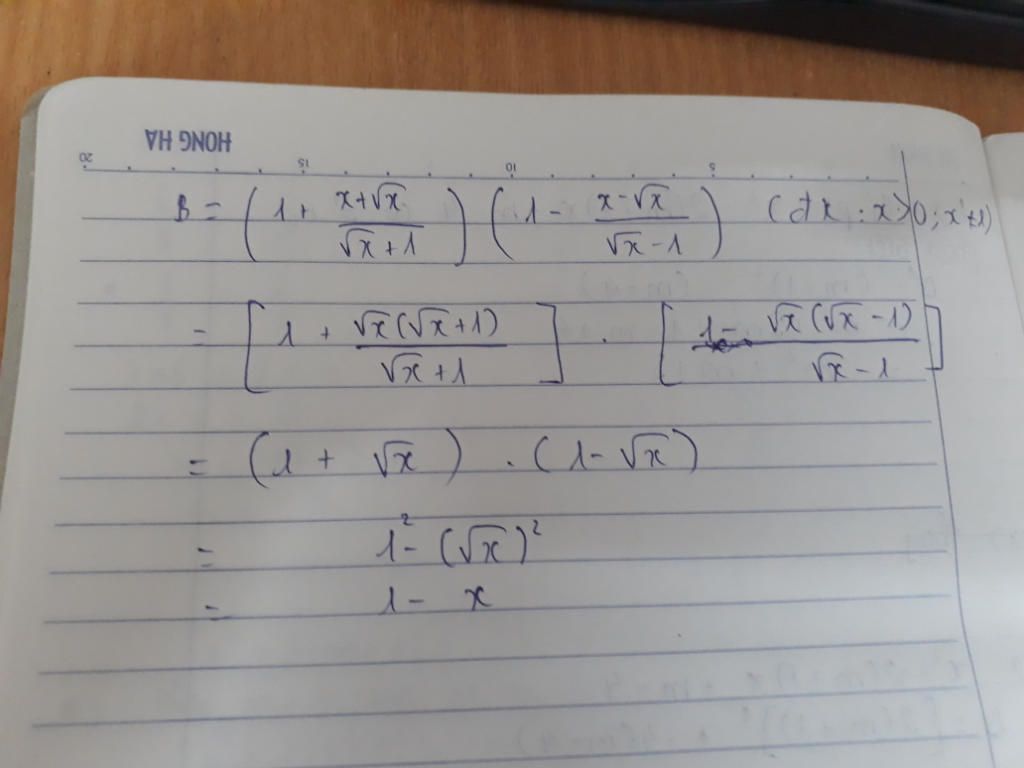 HONG HA
20 15 10 5
B = (1 + (x+√x)/(√x+1)) (1 - (x-√x)/(√x-1)) (đk : x>0; x≠1)
= [1 + √x(√x+1)/(√x+1)] . [1 - √x(√x-1)/(√x-1)]
= (1 + √x) . (1-√x)
= 1² - (√x)²
= 1 - x